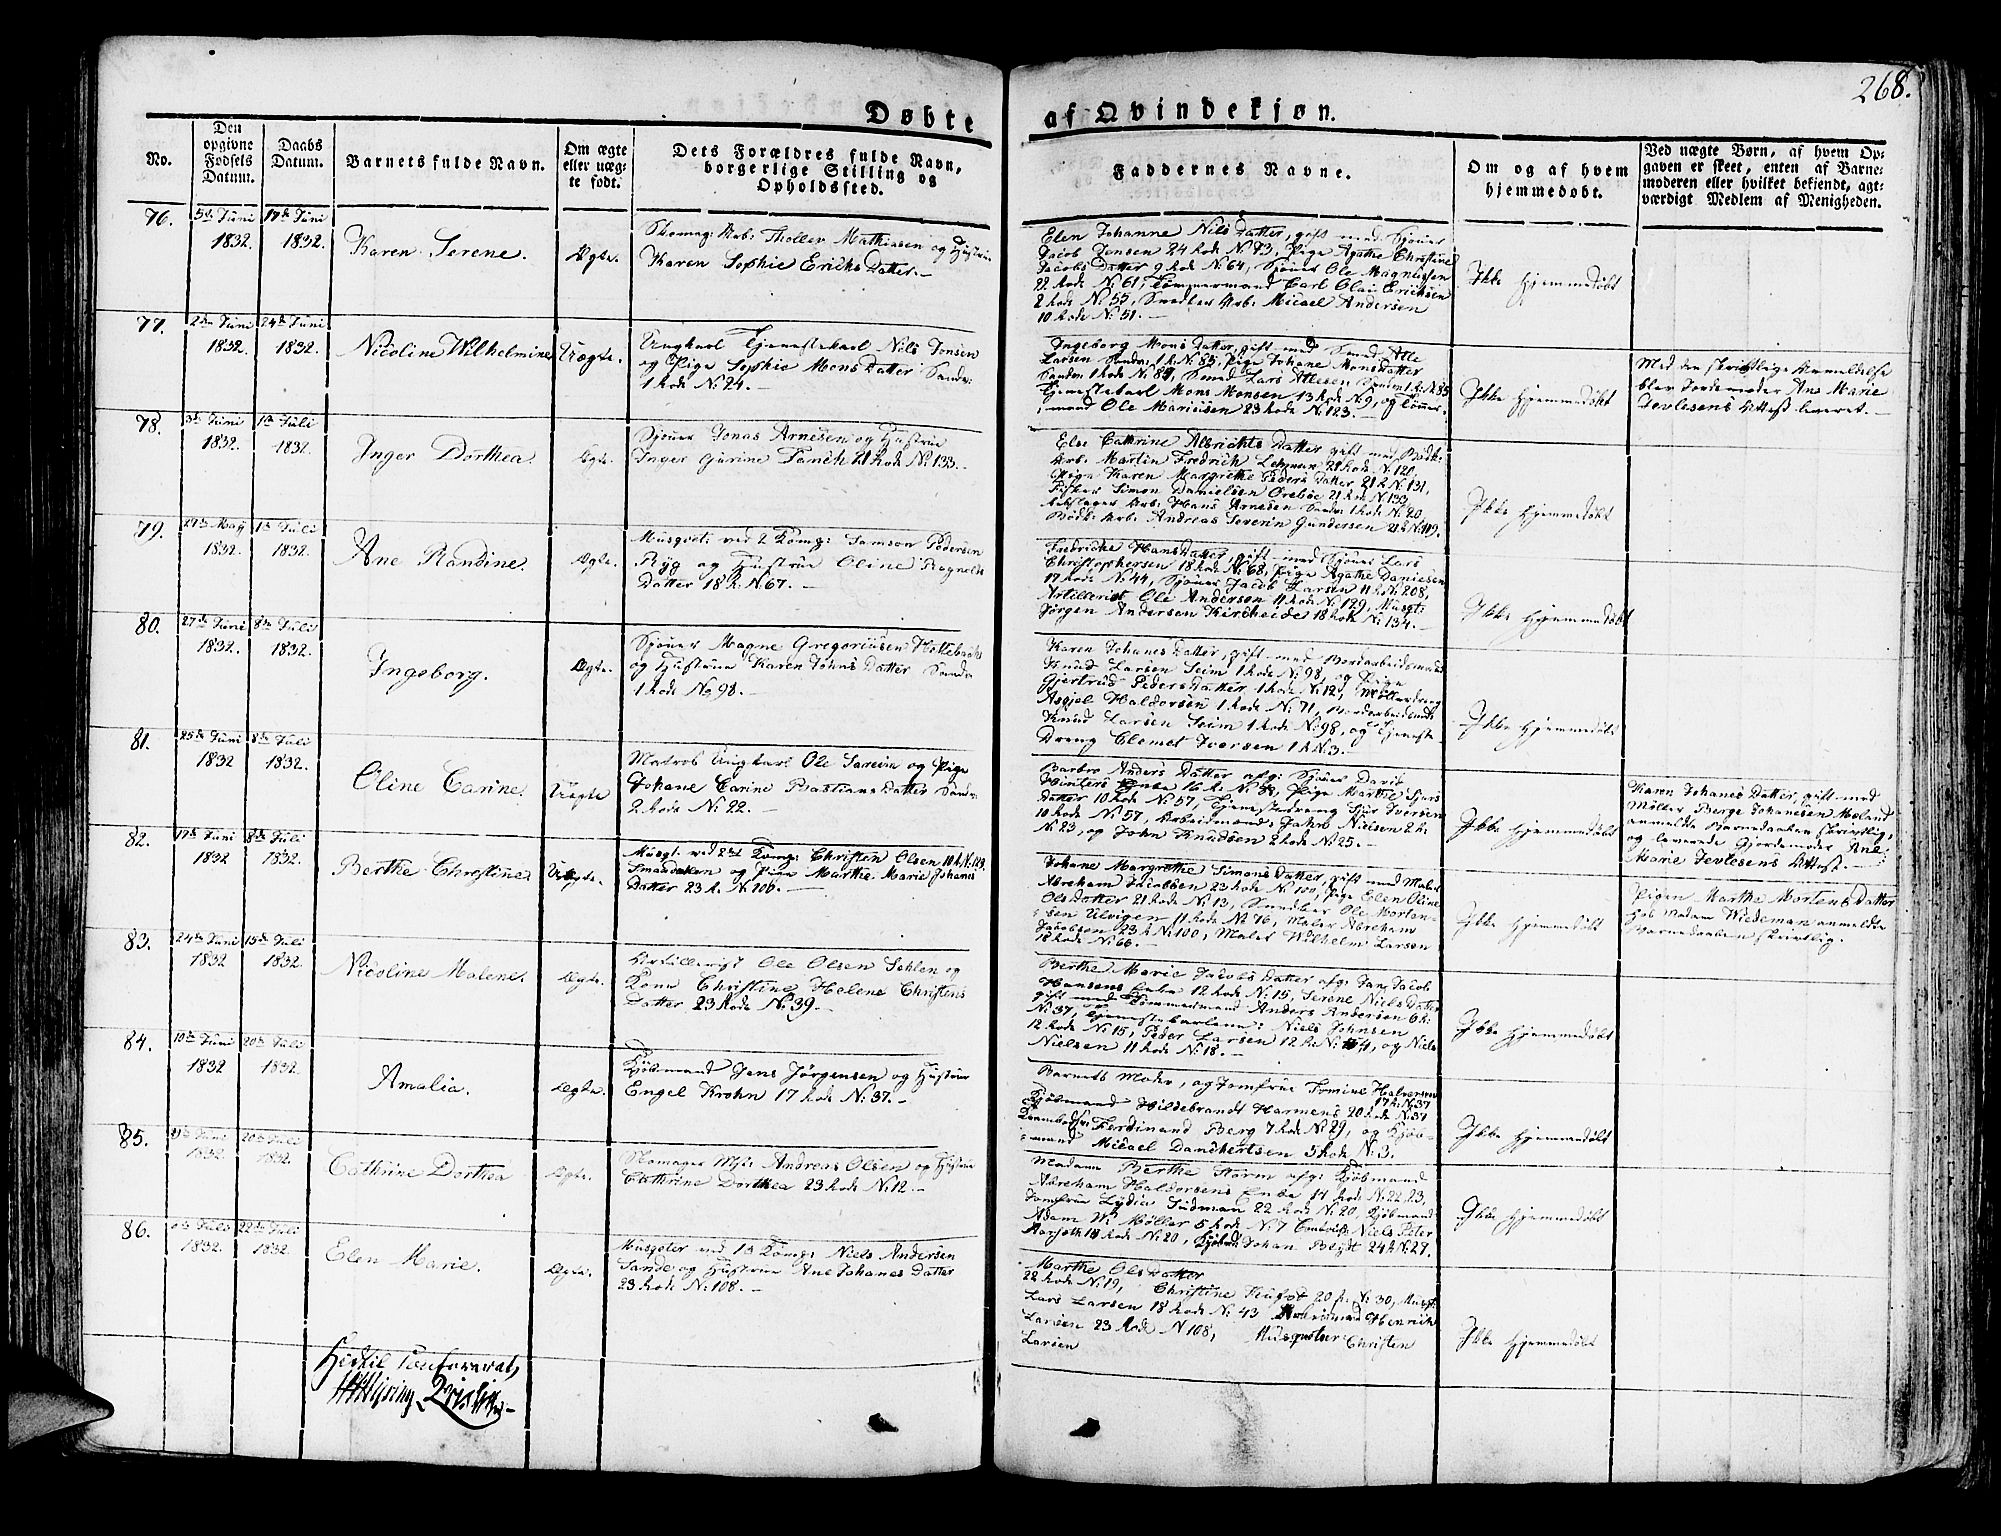 268.
Døbte af Qvindekjøn.
No.
Den opgivne Fødsels Datum.
Daabs Datum.
Barnets fulde Navn.
Om ægte eller uægte født.
Dets Forældres fulde Navn, borgerlige Stilling og Opholdssted.
Faddernes Navne.
Om og af hvem hjemmedøbt.
Ved uægte Børn, af hvem Opgaven er skeet, enten af Barnemoderen eller hvilket bekjendt, agtværdigt Medlem af Menigheden.
76.
5te Juni 1832.
17de Juni 1832.
Karen Serene.
Ægte.
Skomag: Arb: Tholler Mathiesen og Hustrue
Karen Sophie Ericks Datter. –
Elen Johanne Nils Datter, gift med Sjöuer
Jacob Jensen 24 Rode No 73, Pige Agathe Christine
Jacobs Datter 9 Rode No 64, Sjöuer Ole Magnussen
22 Rode No 61, Tömmermand Carl Olai Ericksen
2 Rode No 55, Smedker Arb: Micael Andersen
10 Rode No 51. –
Ikke Hjemmedöbt
77.
2den Juni 1832.
24de Juni 1832.
Nicoline Wilhelmine
Uægte.
Ungkarl Tjenestekarl Nils Jonsen
og Pige Sophie Mons Datter Sandv:
1 Rode No 24. –
Ingeborg Mons Datter, gift med Smed: Atle
Larsen Sandv: 1 R. No 85, Pige Johane Monsdatter
Sandv: 1 Rode No 84, Smed Lars Atlesen Sandv: 1 R. No 85
Tjenestekarl Mons Monsen 13 Rode No 9, og Tömmer:
:mand Ole Mariusen 23 Rode No 123. –
Ikke Hjemmedöbt
Med den skriftlige Anmeldelse
blev Jordemoder Ane Marie
Tevlesens Attest leveret. –
78.
3de Juni 1832.
1ste Juli 1832.
Inger Dorthea.
Ægte.
Sjöuer Jonas Arnesen og Hustrue
Inger Gurine Fanch 21 Rode No 133. –
Else Cathrine Albrichts Datter gift med Bödk:
Arb: Martin Fredrich Lehmsen 21 Rode No 120,
Pige Karen Margrethe Peders Datter 21 R. No 131,
Fisker Simon Danielsen Öreböe 21 R. No 133,
Rebslager Arb: Hans Arnesen Sandv: 1 Rode No 20,
Bödk: Arb: Andreas Severin Gundersen 21 R. No 119.
Ikke Hjemmedöbt
79.
29de May 1832.
1ste Juli 1832.
Ane Randine.
Ægte.
Musqvet: ved 2 Komp: Samson Pedersen
Ryg og Hustrue Oline Ragnolds
Datter 18 R. No 67. –
Fredricke Hans Datter, gift med Sjöuer Lars
Christophersen 18 Rode No 68, Pige Agathe Danielsen
17 Rode No 44, Sjöuer Jacob Larsen 11 Rode No 208,
Artillerist Ole Andersen 11 Rode No 129, Musqt:
Jörgen Andersen Kircheide 18 Rode No 134. –
Ikke Hjemmedöbt
80.
27de Juni 1832.
8de Juli 1832.
Ingeborg.
Ægte.
Sjöuer Magne Gregoriusen Hollebæks
og Hustrue Karen Johns Datter Sandv:
1 Rode No 98. –
Karen Johanes Datter, gift med Bordarbeidsmand
Knud Larsen Seim 1 Rode No 98, og Pige
Gjertrud Peders Datter 1 Rode No 12, Möllerdreng
Asgjel Haldorsen 1 Rode No 71, Bordarbeidsmd:
Knud Larsen Seim 1 Rode No 98, og Tjeneste-
Dreng Clemet Iversen 1 R. No 3. –
Ikke Hjemmedöbt
81.
25de Juni 1832
8de Juli 1832.
Oline Carine.
Uægte
Matros Ungkarl Ole Sareim og Pige
Johane Carine Bastians Datter Sandv:
2 Rode No 22. –
Barbro Anders Datter afg: Sjöuer Davit
Winters Enke 16 R. No 38, Pige Marthe Sjurs
Datter 10 Rode No 57, Tjenestedreng Sjur Iversen
10 Rode No 57, Arbeidsmand: John Nielsen 2 R.
No 23, og John Knudsen 2 Rode No 25. –
Ikke Hjemmedöbt
Karen Johanes Datter, gift med
Möller Berge Johanesen Moland
anmelde Barnedaaben skriftlig,
og leverede Gjordemoder Ane
Marie Tevlesens Attest. –
82.
17de Juni 1832
8de Juli 1832.
Berthe Christine.
Uægte.
Musqt: ved 2det Komp: Christen Olsen 10 R. No 123
Smaadalen og Pige Marthe Marie Johans
Datter 23 R. No 100. –
Johane Margrethe Simons Datter, gift med Maler
Abraham Jacobsen 23 Rode No 100, Pige Elen Oline
Ols Datter 21 Rode No 13, Smedker Ole Morten-
:sen Ulvigen 11 Rode No 76, Maler Abraham
Jacobsen 23 R. No 100, Maler Wilhelm Larsen
12 Rode No 66. –
Ikke Hjemmedöbt
Pigen Marthe Mortens Datter
hos Madam Wiedeman anmeldte
Barnedaaben skrivtlig. –
83.
24de Juni 1832
15de Juli 1832.
Nicoline Malene.
Ægte.
Artillerist Ole Olsen Sehlen og
Kone Christine Helene Christens
Datter 23 Rode No 39. –
Berthe Marie Jacobs Datter afg: Jan Jacob
Hansens Enke 12 Rode No 15, Serene Niels Datter
gift med Tömmermand Anders Andersen 6 R:
No 37, Tjenestekarlene: Niels Johnsen
12 Rode No 15, Peder Larsen 12 R. No 41, og Niels
Nielsen 11 Rode No 18. –
Ikke Hjemmedöbt
84.
10de Juni 1832
20de Juli 1832.
Amalia.
Ægte.
Kjöbmand Jens Jörgensen og Hustrue
Engel Krohn 17 Rode No 37. –
Barnets Moder, og Jomfrue Tomine Halversen
17 R. No 37
Kjöbmand Hildebrandt Harmens 20 Rode No 37
Ferdinand Berg 7 Rode No 29, og Kjöb-
:mand Micael Danckertsen 5 Rode No 3. –
Ikke Hjemmedöbt
85.
Juni 1832
20de Juli 1832.
Cathrine Dorthea
Ægte.
Skomager Mst: Andreas Olsen og Hustrue
Cathrine Dorthea 23 Rode No 12. –
Madame Berthe Storm afg: Kjöbmand
Abraham Haldorsens Enke 14 Rode No 22,23,
Jomfrue Lydia Sudman 22 Rode No 20, Kjöbmand
Adam W. Möller 5 Rode No 7 Niels Peter
14 Rode No 20, Johan Beydt 24 R. No 27.
Ikke Hjemmedöbt
86.
Juli 1832.
22de Juli 1832.
Elen Marie.
Ægte.
Musqveter ved 13 Komp: Niels Andersen
Sande og Hustrue Ane Johanes Datter
23 Rode No 108. –
Marthe Ols Datter
22 Rode No 19, Christine 20 R. No 30, Musqt:
Lars Larsen 18 Rode No 43 Henrich
Larsen 23 Rode No 108, Musqveter Christen
Larsen
Ikke Hjemmedöbt